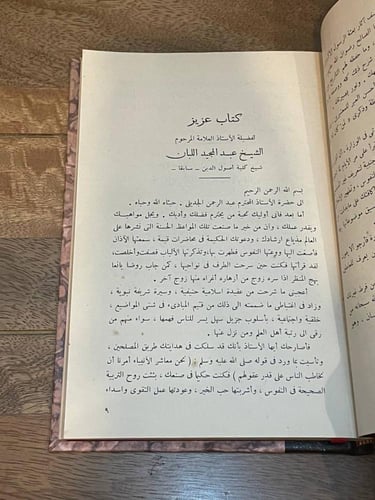 كتاب عزيز
لفضيلة الأستاذ العلامة المرحوم
الشيخ عبد المجيد اللبان
شيخ كلية أصول الدين - سابقا -
بسم الله الرحمن الرحيم
الى حضرة الأستاذ المحترم عبد الرحمن الجديلى . حياه الله وحباه .
أما بعد فانى أوليك محبة من يحترم فضلك وأدبك . ويجل مواهبك
ويقدر عملك ، وان من خير ما صنعت تلك المواعظ الحسنة التى نشرها على
العالم مذياع ارشادك ، ودعوتك الحكيمة فى محاضرات قيمة ، سمعتها الآذان
فأصغت اليها ووعتها النفوس فطهرت بها ، وتذكرتها الألباب فصفت وأخلصت،
لقد قرأتها فكنت حين سرحت الطرف فى نواحيها ، كمن جاب روضا يانعا
بهج المنظر اذا سره زوج من أزهاره أغراه منها زوج آخر .
أعجبنى ما شرحت من عقيدة اسلامية حنيفة ، وسيرة شريفة نبوية ،
وزاد فى اغتباطى ما ضمنته الى ذلك من قيم المبادىء فى شتى المواضيع ،
خلقية واجتماعية ، بأسلوب جزيل سهل يسر للناس فهمها ، سواء منهم من
رقى الى رتبة أهل العلم ومن نزل عنها .
فأصارحك أيها الأستاذ بأنك قد سلكت فى هدايتك طريق المصلحين ،
وتأسيت بما ورد فى قوله صلى الله عليه وسلم ( نحن معاشر الأنبياء أمرنا أن
نخاطب الناس على قدر عقولهم ) فكنت حكيما فى صنعك ، بثثت روح التربية
الصحيحة فى النفوس ، وأشربتها حب الخير ، وعودتها عمل التقوى واسداء
٩